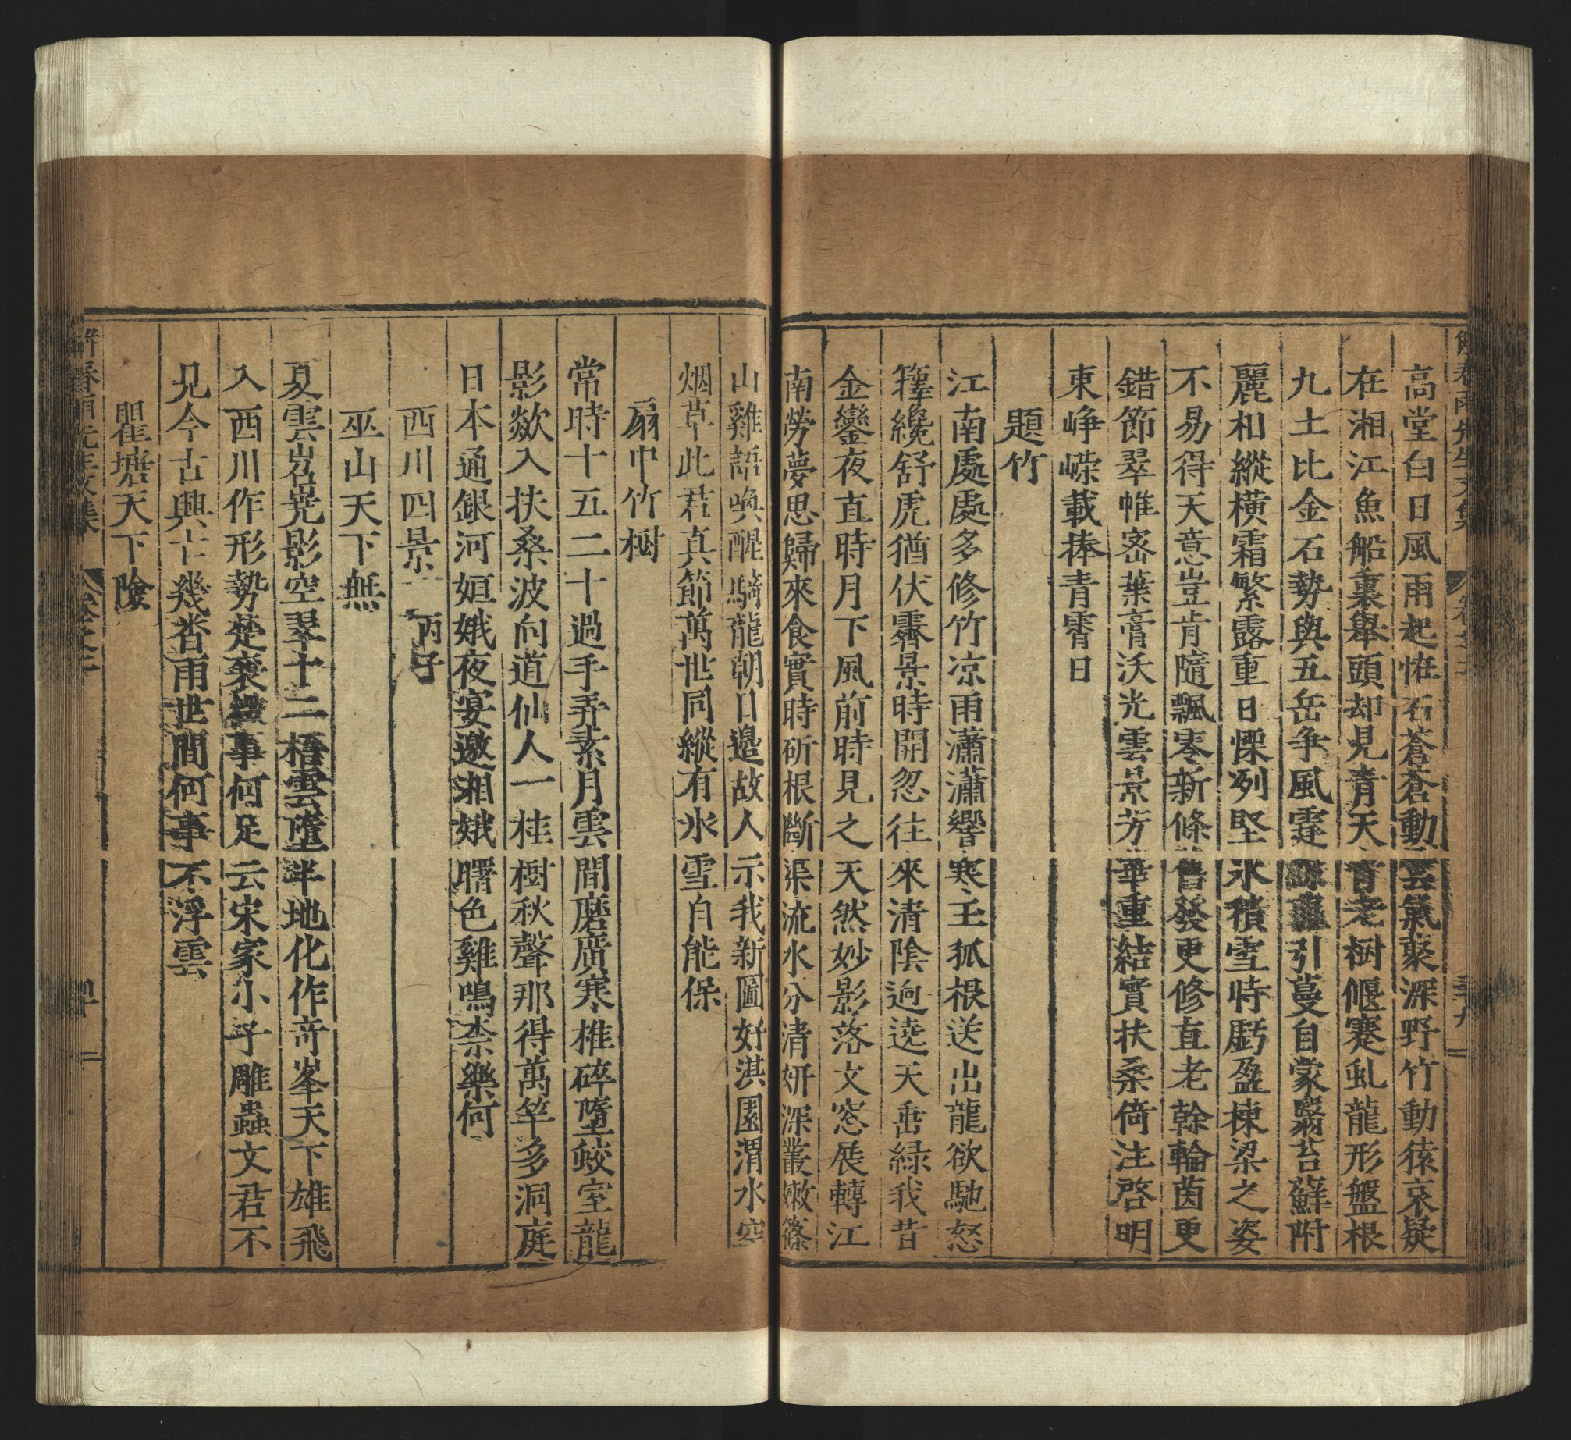 高堂白日風雨起怪石蒼蒼動雲氣聚深野竹動猿哀疑
在湘江魚船裏舉頭却見青天青老樹偃蹇虬龍形盤根
九土比金石勢與五岳爭風霆引蔓自蒙翳苔蘚附
麗相縱橫霜繁露重日慄冽堅氷積雪時虧盈棟梁之姿
不易得天意豈肯隨飄零新條舊發更修直老幹輪茵更
錯節翠帷密葉膏沃光雲景芳華重結實扶桑倚注啓明
東崢嶸載捧青霄日
題竹
江南處處多修竹凉雨瀟瀟響寒玉狐根送出龍欲馳怒
籜纔舒虎猶伏霽景時開忽往來清陰逈遶天垂緑我昔
金鑾夜直時月下風前時見之天然妙影落文窓展轉江
南勞夢思歸來食實時斫根斷渠流水分清妍深叢嫩篠
山雞語喚醒騎龍朝日邊故人示我新圖好淇園渭水空
烟草此君真節萬世同縱有氷雪自能保
扇中竹樹
常時十五二十過手弄素月雲間磨廣寒椎碎墮蛟室龍
影歘入扶桑波向道仙人一桂樹秋聲那得萬竿多洞庭
日本通銀河姮娥夜宴邀湘娥曙色雞鳴柰樂何
西川四景 丙子
巫山天下無
夏雲岩嶤影空翠十二梧雲墮半地化作竒峯天下雄飛
入西川作形勢楚襄事何足云宋家小子雕蟲文君不
見今古興亡幾畨雨世間何事不浮雲
瞿塘天下險